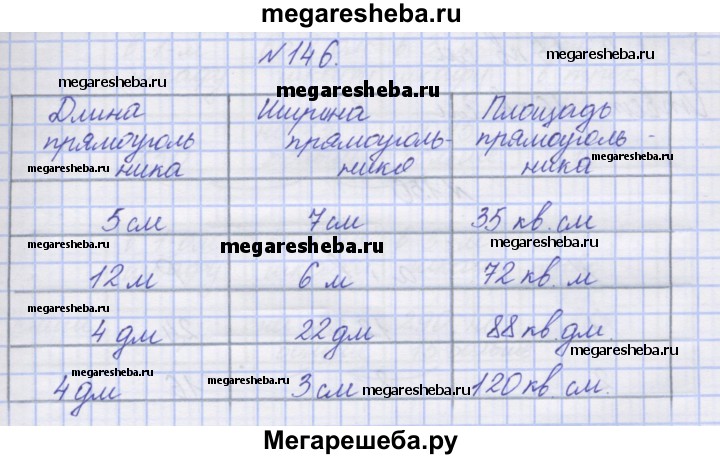 megaresheba.ru
N146.
megaresheba.ru
megaresheba.ru
Длина Ширина Площадь
прямоуголь прямоуголь- прямоуголь-
megaresheba.ru
megaresheba.ru
ника нико ника
5 см 7 см 35 кв. см
megaresheba.ru
megaresheba.ru
megaresheba.ru
12 м 6 м 72 кв. м
megaresheba.ru
4 дм 22 дм 88 кв. дм.
megaresheba.ru
megaresheba.ru
megaresheba.ru
megaresheba.ru
4 дм 3 см 120 кв. см.
Мегарешеба.ру